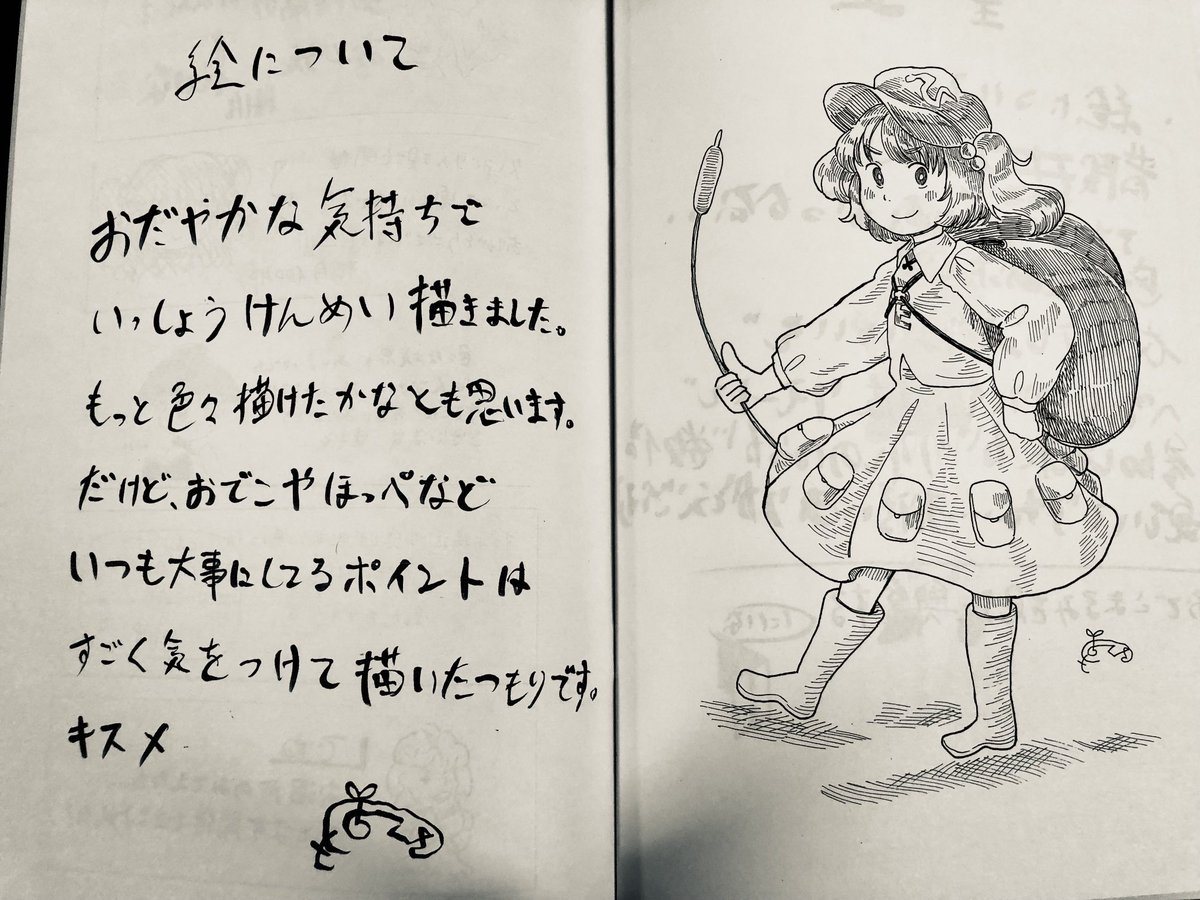 絵について
おだやかな気持ちで
いっしょうけんめい描きました。
もっと色々描けたかなとも思います。
だけど、おでこやほっぺなど
いつも大事にしてるポイントは
すごく気をつけて描いたつもりです。
キスメ